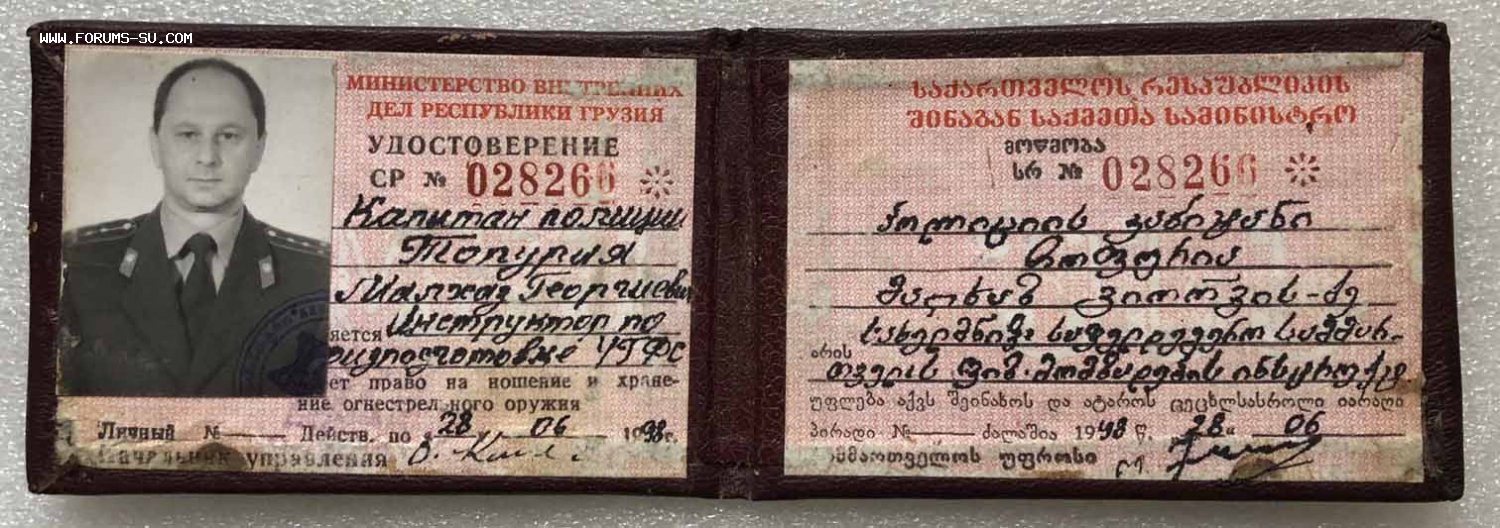 www.forums-su.com
МИНИСТЕРСТВО ВНУТРЕННИХ
ДЕЛ РЕСПУБЛИКИ ГРУЗИЯ
УДОСТОВЕРЕНИЕ
СР № 028266
Капитан полиции
Топурия
Малхаз Георгиевич
яется Инструктор по
физподготовке УГФС
ет право на ношение и хране-
ние огнестрельного оружия
Личный № Действ. по 28 06 1998 г.
Начальник управления
საქართველოს რესპუბლიკის
შინაგან საქმეთა სამინისტრო
მოწმობა
სრ № 028266
პოლიციის კაპიტანი
თოფურია
მალხაზ გიორგის-ძე
სახელმწიფო საფელდეგერო სამმარ-
არის თველოს ფიზ. მომზადების ინსტრუქტ
უფლება აქვს შეინახოს და ატაროს ცეცხლსასროლი იარაღი
პირადი № ძალაშია 1998 წ. "28" 06
სამმართველოს უფროსი